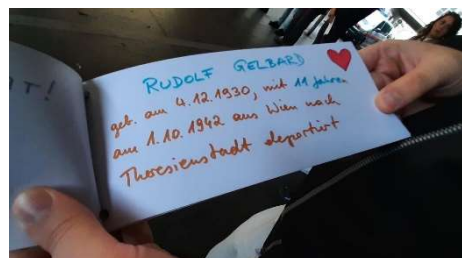 T!
RUDOLF GELBARD
geb. am 4.12.1930, mit 11 Jahren
am 1.10.1942 aus Wien nach
Theresienstadt deportirt